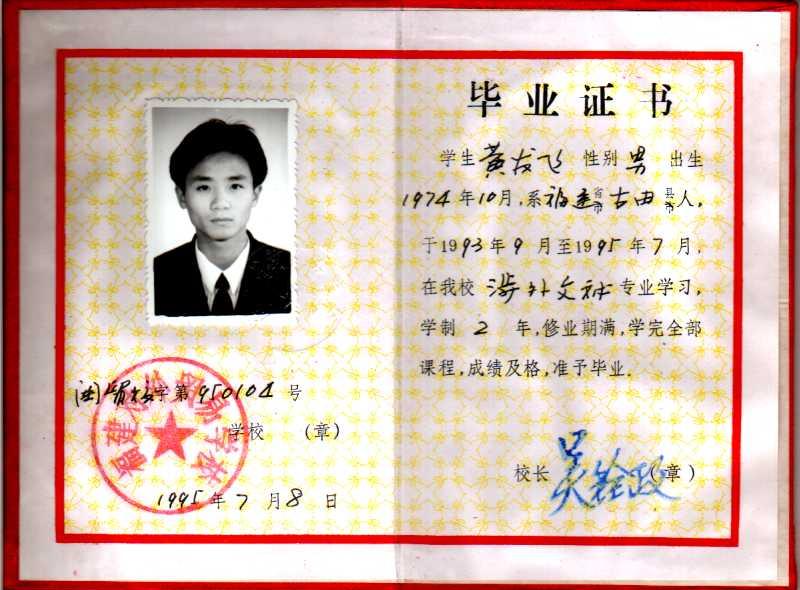 毕业证书
学生黄发飞 性别男 出生
1974年10月，系福建省市古田县市人，
于1993年9月至1995年7月，
在我校涉外文秘专业学习，
学制2年，修业期满，学完全部
课程，成绩及格，准予毕业。
校长 (章)
字第950101号
学校 (章)
1995年7月8日